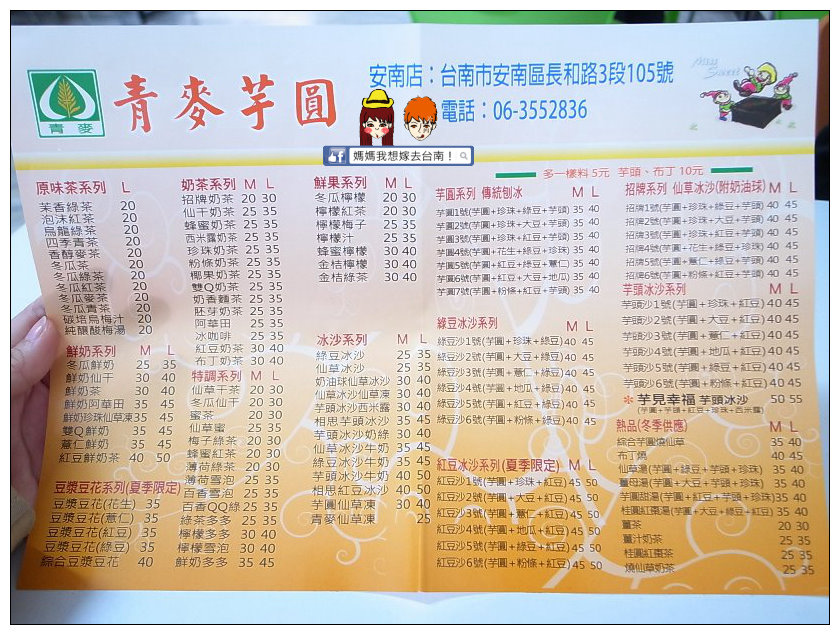 青麥
青麥芋圓
安南店：台南市安南區長和路3段105號
電話：06-3552836
Miss Sweet
媽媽我想嫁去台南！
多一樣料 5元 芋頭、布丁 10元
原味茶系列 L
茉香綠茶 20
泡沫紅茶 20
烏龍綠茶 20
四季青茶 20
香醇麥茶 20
冬瓜茶 20
冬瓜綠茶 20
冬瓜紅茶 20
冬瓜麥茶 20
冬瓜青茶 20
碳培烏梅汁 20
純釀酸梅湯 20
鮮奶系列 M L
冬瓜鮮奶 25 35
鮮奶仙干 30 40
鮮奶茶 30 40
鮮奶阿華田 35 45
鮮奶珍珠仙草凍 35 45
雙Q鮮奶 35 45
薏仁鮮奶 35 45
紅豆鮮奶茶 40 50
豆漿豆花系列(夏季限定)
豆漿豆花(花生) 35
豆漿豆花(薏仁) 35
豆漿豆花(紅豆) 35
豆漿豆花(綠豆) 35
綜合豆漿豆花 40
奶茶系列 M L
招牌奶茶 20 30
仙干奶茶 25 35
蜂蜜奶茶 25 35
西米露奶茶 25 35
珍珠奶茶 25 35
粉條奶茶 25 35
椰果奶茶 25 35
雙Q奶茶 25 35
奶香麵茶 25 35
胚芽奶茶 25 35
阿華田 25 35
冰咖啡 25 35
紅豆奶茶 30 40
布丁奶茶 30 40
特調系列 M L
仙草干茶 20 30
冬瓜仙干 20 30
蜜茶 20 30
仙草蜜 25 35
梅子綠茶 20 30
蜂蜜紅茶 20 30
薄荷綠茶 20 30
薄荷雪泡 25 35
百香雪泡 25 35
百香QQ綠 25 35
綠茶多多 25 35
檸檬多多 30 40
檸檬雪泡 30 40
鮮奶多多 35 45
鮮果系列 M L
冬瓜檸檬 20 30
檸檬紅茶 20 30
檸檬梅子 25 35
檸檬汁 25 35
蜂蜜檸檬 30 40
金桔檸檬 30 40
金桔綠茶 30 40
冰沙系列 M L
綠豆冰沙 25 35
仙草冰沙 25 35
奶油球仙草冰沙 30 40
仙草冰沙仙草凍 30 40
芋頭冰沙西米露 30 40
相思芋頭冰沙 35 45
芋頭冰沙奶綠 30 40
仙草冰沙牛奶 35 45
綠豆冰沙牛奶 35 45
芋頭冰沙牛奶 40 50
相思紅豆冰沙 40 50
芋圓仙草凍 30 40
青麥仙草凍 25
芋圓系列 傳統刨冰 M L
芋圓1號(芋圓+珍珠+綠豆+芋頭) 35 40
芋圓2號(芋圓+珍珠+大豆+芋頭) 35 40
芋圓3號(芋圓+珍珠+紅豆+芋頭) 35 40
芋圓4號(芋圓+花生+綠豆+珍珠) 35 40
芋圓5號(芋圓+紅豆+綠豆+薏仁) 35 40
芋圓6號(芋圓+紅豆+大豆+地瓜) 35 40
芋圓7號(芋圓+粉條+紅豆+芋頭) 35 40
綠豆冰沙系列 M L
綠豆沙1號(芋圓+珍珠+綠豆) 40 45
綠豆沙2號(芋圓+大豆+綠豆) 40 45
綠豆沙3號(芋圓+薏仁+綠豆) 40 45
綠豆沙4號(芋圓+地瓜+綠豆) 40 45
綠豆沙5號(芋圓+紅豆+綠豆) 40 45
綠豆沙6號(芋圓+粉條+綠豆) 40 45
紅豆冰沙系列(夏季限定) M L
紅豆沙1號(芋圓+珍珠+紅豆) 45 50
紅豆沙2號(芋圓+大豆+紅豆) 45 50
紅豆沙3號(芋圓+薏仁+紅豆) 45 50
紅豆沙4號(芋圓+地瓜+紅豆) 45 50
紅豆沙5號(芋圓+綠豆+紅豆) 45 50
紅豆沙6號(芋圓+粉條+紅豆) 45 50
招牌系列 仙草冰沙(附奶油球) M L
招牌1號(芋圓+珍珠+綠豆+芋頭) 40 45
招牌2號(芋圓+珍珠+大豆+芋頭) 40 45
招牌3號(芋圓+珍珠+紅豆+芋頭) 40 45
招牌4號(芋圓+花生+綠豆+珍珠) 40 45
招牌5號(芋圓+薏仁+綠豆+芋頭) 40 45
招牌6號(芋圓+粉條+紅豆+芋頭) 40 45
芋頭冰沙系列 M L
芋頭沙1號(芋圓+珍珠+紅豆) 40 45
芋頭沙2號(芋圓+大豆+紅豆) 40 45
芋頭沙3號(芋圓+薏仁+紅豆) 40 45
芋頭沙4號(芋圓+地瓜+紅豆) 40 45
芋頭沙5號(芋圓+綠豆+紅豆) 40 45
芋頭沙6號(芋圓+粉條+紅豆) 40 45
＊芋見幸福 芋頭冰沙 50 55
(芋圓+芋頭+紅豆+珍珠+西米露)
熱品(冬季供應) M L
綜合芋圓燒仙草 35 40
布丁燒 40 45
仙草湯(芋圓+綠豆+芋頭+珍珠) 35 40
薑母湯(芋圓+大豆+芋頭+珍珠) 35 40
芋圓甜湯(芋圓+紅豆+芋頭+珍珠) 35 40
桂圓紅棗湯(芋圓+大豆+綠豆+紅豆) 35 40
薑茶 20 30
薑汁奶茶 25 35
桂圓紅棗茶 25 35
燒仙草奶茶 25 35